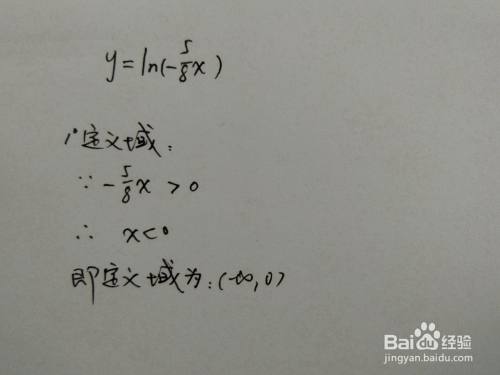 y=ln(-5/8x)
1°定义域：
∵ -5/8x > 0
∴ x<0
即定义域为：(-∞,0)
Baidu经验
jingyan.baidu.com